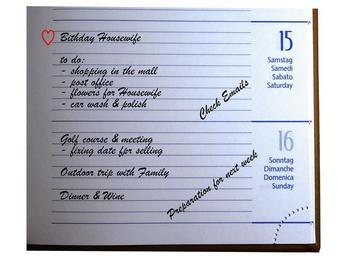 Bithday Housewife
to do:
- shopping in the mall
- post office
- flowers for Housewife
- car wash & polish
Check Emails
15
Samstag
Samedi
Sabato
Saturday
Golf course & meeting
- fixing date fpr selling
Outdoor trip with Family
Dinner & Wine
Preparation for next week
16
Sonntag
Dimanche
Domenica
Sunday